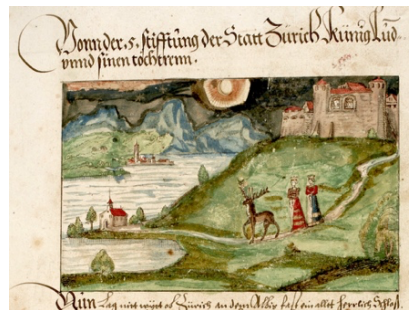 Vonn der .5. stifftung der Statt Zürich Künig Lud
vnnd sinen töchteren.
Nun lag nit wyt ob Zürich an dem Albis fast ein allt herrlich Schloß